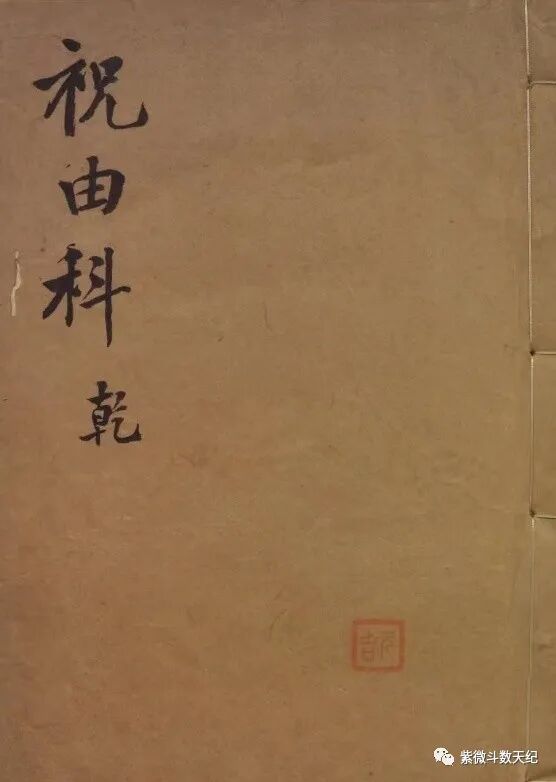 祝由科
乾
紫微斗数天纪